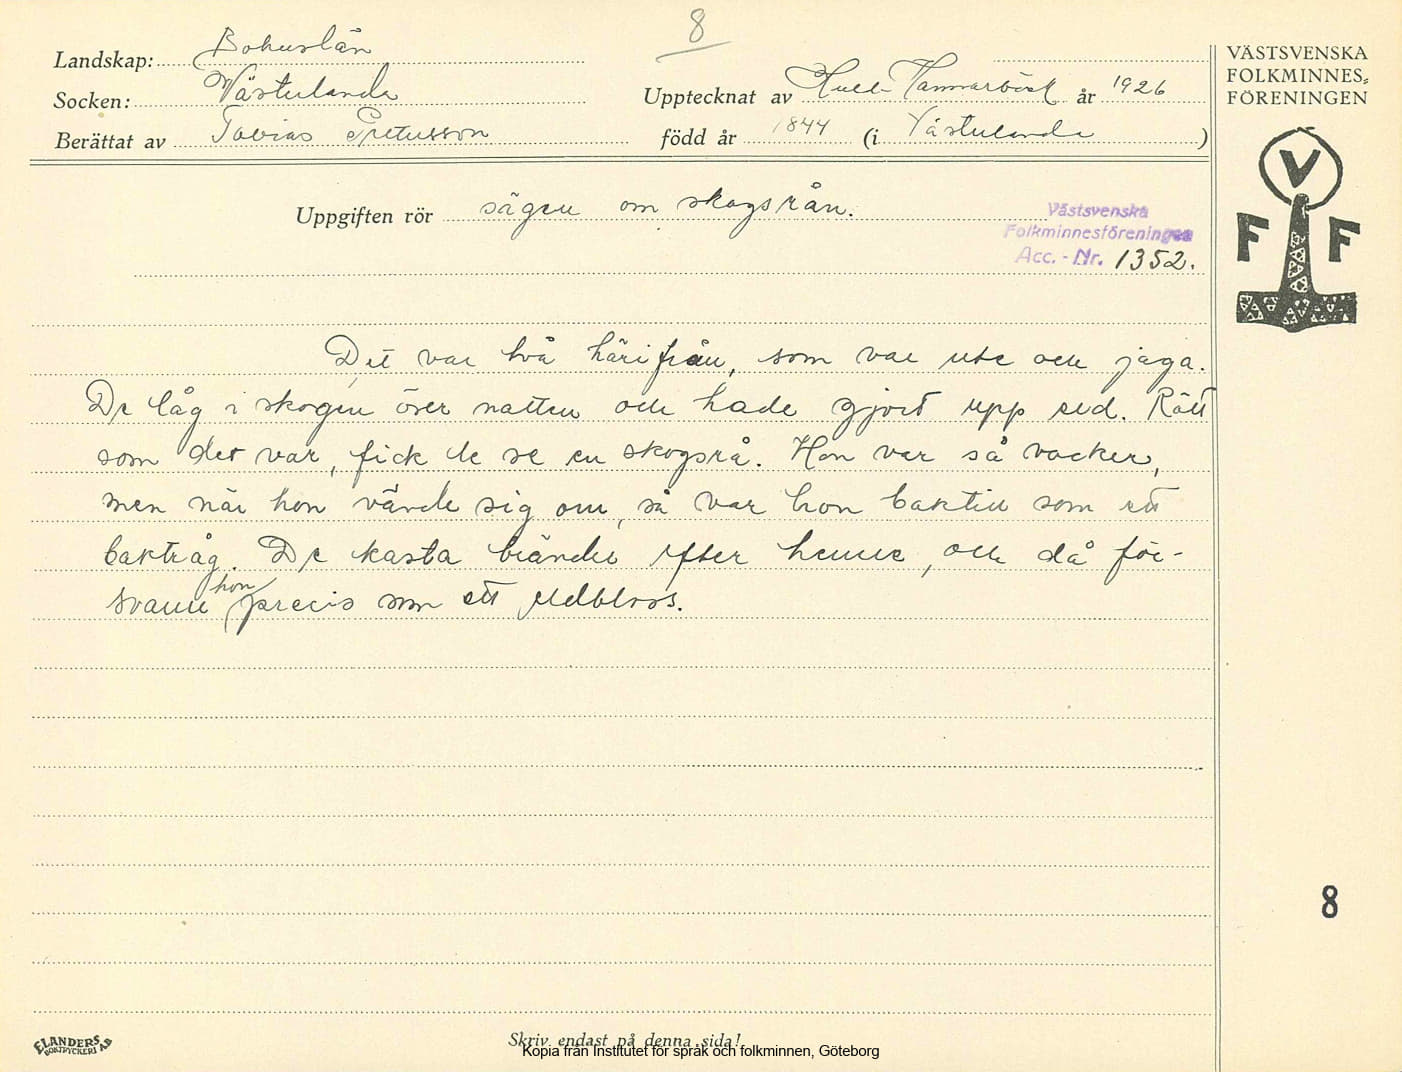 8
Landskap: Bohuslän
Socken: Västerlanda
Upptecknat av Hulda Hammarbäck år 1926
Berättat av Tobias Petersson född år 1844 (i Västerlanda)
VÄSTSVENSKA
FOLKMINNES-
FÖRENINGEN
V
F F
Uppgiften rör sägen om skogsrån.
Västsvenska
Folkminnesföreningen
Acc. - Nr. 1352.
Det var två härifrån, som var ute och jaga.
De låg i skogen över natten och hade gjort upp eld. Rätt
som det var, fick de se en skogsrå. Hon var så vacker,
men när hon vände sig om, så var hon baktill som ett
baktråg. De kasta bränder efter henne, och då för-
svann hon precis som ett eldbloss.
8
ELANDERS
BOKTRYCKERI AB
Skriv endast på denna sida!
Kopia från Institutet för språk och folkminnen, Göteborg